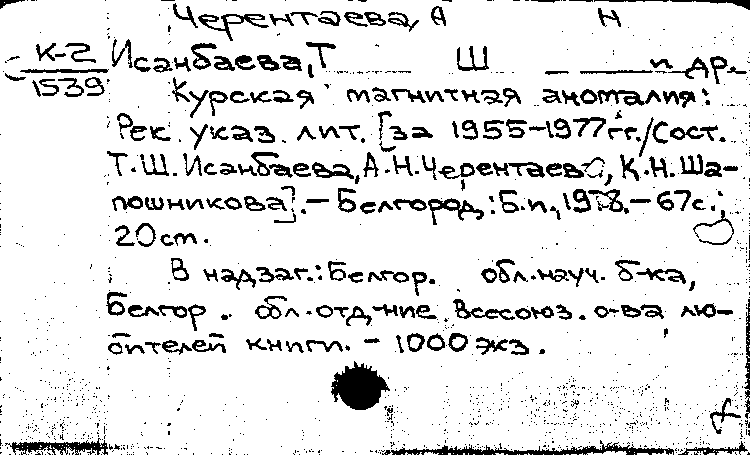 Черентаева, А Н
К-2 Исанбаева, Т Ш и др.
1539 Курская магнитная аномалия:
Рек. указ. лит. [за 1955-1977 гг./Сост.
Т.Ш. Исанбаева, А.Н. Черентаева, К.Н. Ша-
пошникова]. - Белгород,: Б.и., 1978. - 67с.;
20 см.
В надзаг.: Белгор. обл. науч. б-ка,
Белгор. обл. отд-ние Всесоюз. о-ва лю-
бителей книги. - 1000 экз.